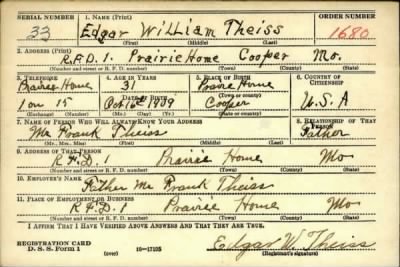 SERIAL NUMBER 1. NAME (Print) ORDER NUMBER
33 Edgar William Theiss 1680
(First) (Middle) (Last)
2. ADDRESS (Print)
R.F.D. 1. Prairie Home Cooper Mo.
(Number and street or R. F. D. number) (Town) (County) (State)
3. TELEPHONE 4. AGE IN YEARS 5. PLACE OF BIRTH 6. COUNTRY OF CITIZENSHIP
Prairie Home 31 Prairie Home
DATE OF BIRTH (Town or county)
1 on 15 Oct 16 1909 Cooper U.S.A
(Exchange) (Number) (Mo.) (Day) (Yr.) (State or country)
7. NAME OF PERSON WHO WILL ALWAYS KNOW YOUR ADDRESS 8. RELATIONSHIP OF THAT PERSON
Mr. Frank Theiss Father
(Mr., Mrs., Miss) (First) (Middle) (Last)
9. ADDRESS OF THAT PERSON
R.F.D. 1 Prairie Home Mo
(Number and street or R. F. D. number) (Town) (County) (State)
10. EMPLOYER'S NAME
Father Mr Frank Theiss
11. PLACE OF EMPLOYMENT OR BUSINESS
R.F.D. 1 Prairie Home Mo
(Number and street or R. F. D. number) (Town) (County) (State)
I AFFIRM THAT I HAVE VERIFIED ABOVE ANSWERS AND THAT THEY ARE TRUE.
REGISTRATION CARD
D. S. S. Form 1 (over) 16—17105 Edgar W. Theiss
(Registrant's signature)